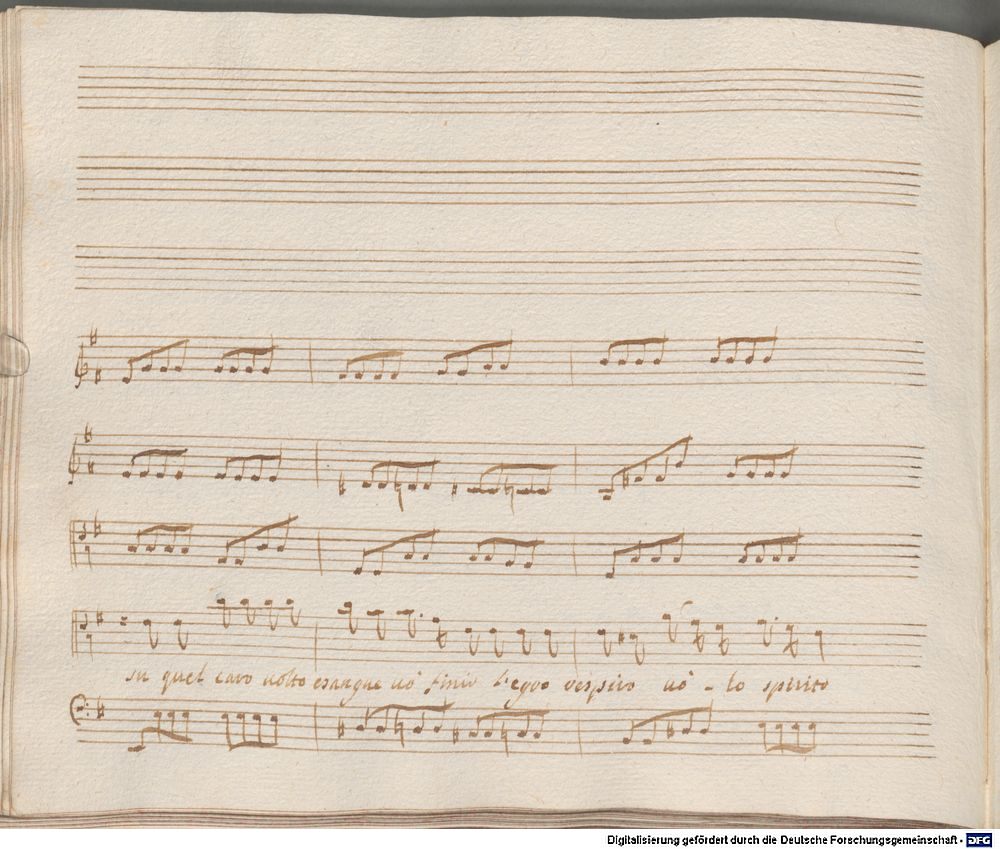 su quel caro uolto esangue uò finir l'egro respiro uò - lo spirito
Digitalisierung gefördert durch die Deutsche Forschungsgemeinschaft - DFG